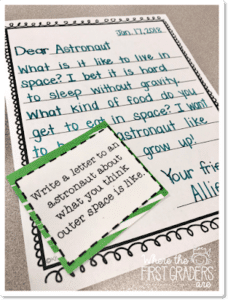 Jan. 17, 2018
Dear Astronaut
What is it like to live in
space? I bet it is hard
to sleep without gravity.
What kind of food do you
get to eat in space? I want
to astronaut like
grow up!
Your frie
Allie
Write a letter to an
astronaut about
what you think
outer space is like.
Where the
FIRST GRADERS
are